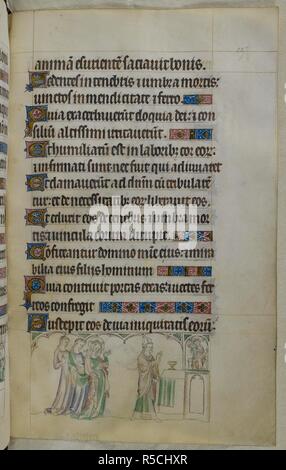 animam esurientē saciavit bonis.
Sedentes in tenebris ⁊ umbra mortis:
vinctos in mendicitate ⁊ ferro.
Quia exacerbaverūt eloquia dei: ⁊ con
siliū altissimi irritaverūt.
Et humiliatū est in laborib; cor eor;
infirmati sunt nec fuit qui adiuvaret
Et clamaverūt ad dnm cū tribularē
tur: et de necessitatib; eor; liberavit eos.
Et eduxit eos de tenebris ⁊ umbra mor
tis: ⁊ vincula eorum disrupit.
Confiteantur domino mīe eius: ⁊ mira
bilia eius filiis hominum
Quia contrivit portas ereas: ⁊ vectes fer
reos confregit
Suscepit eos de via iniquitatis eorū:
alamy
Image ID: R5CHXR
www.alamy.com